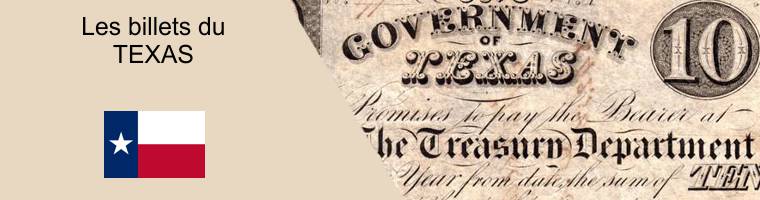 Les billets du
TEXAS
GOVERNMENT
OF
TEXAS
10
Promises to pay the Bearer at
The Treasury Department
Year from date, the sum of TEN